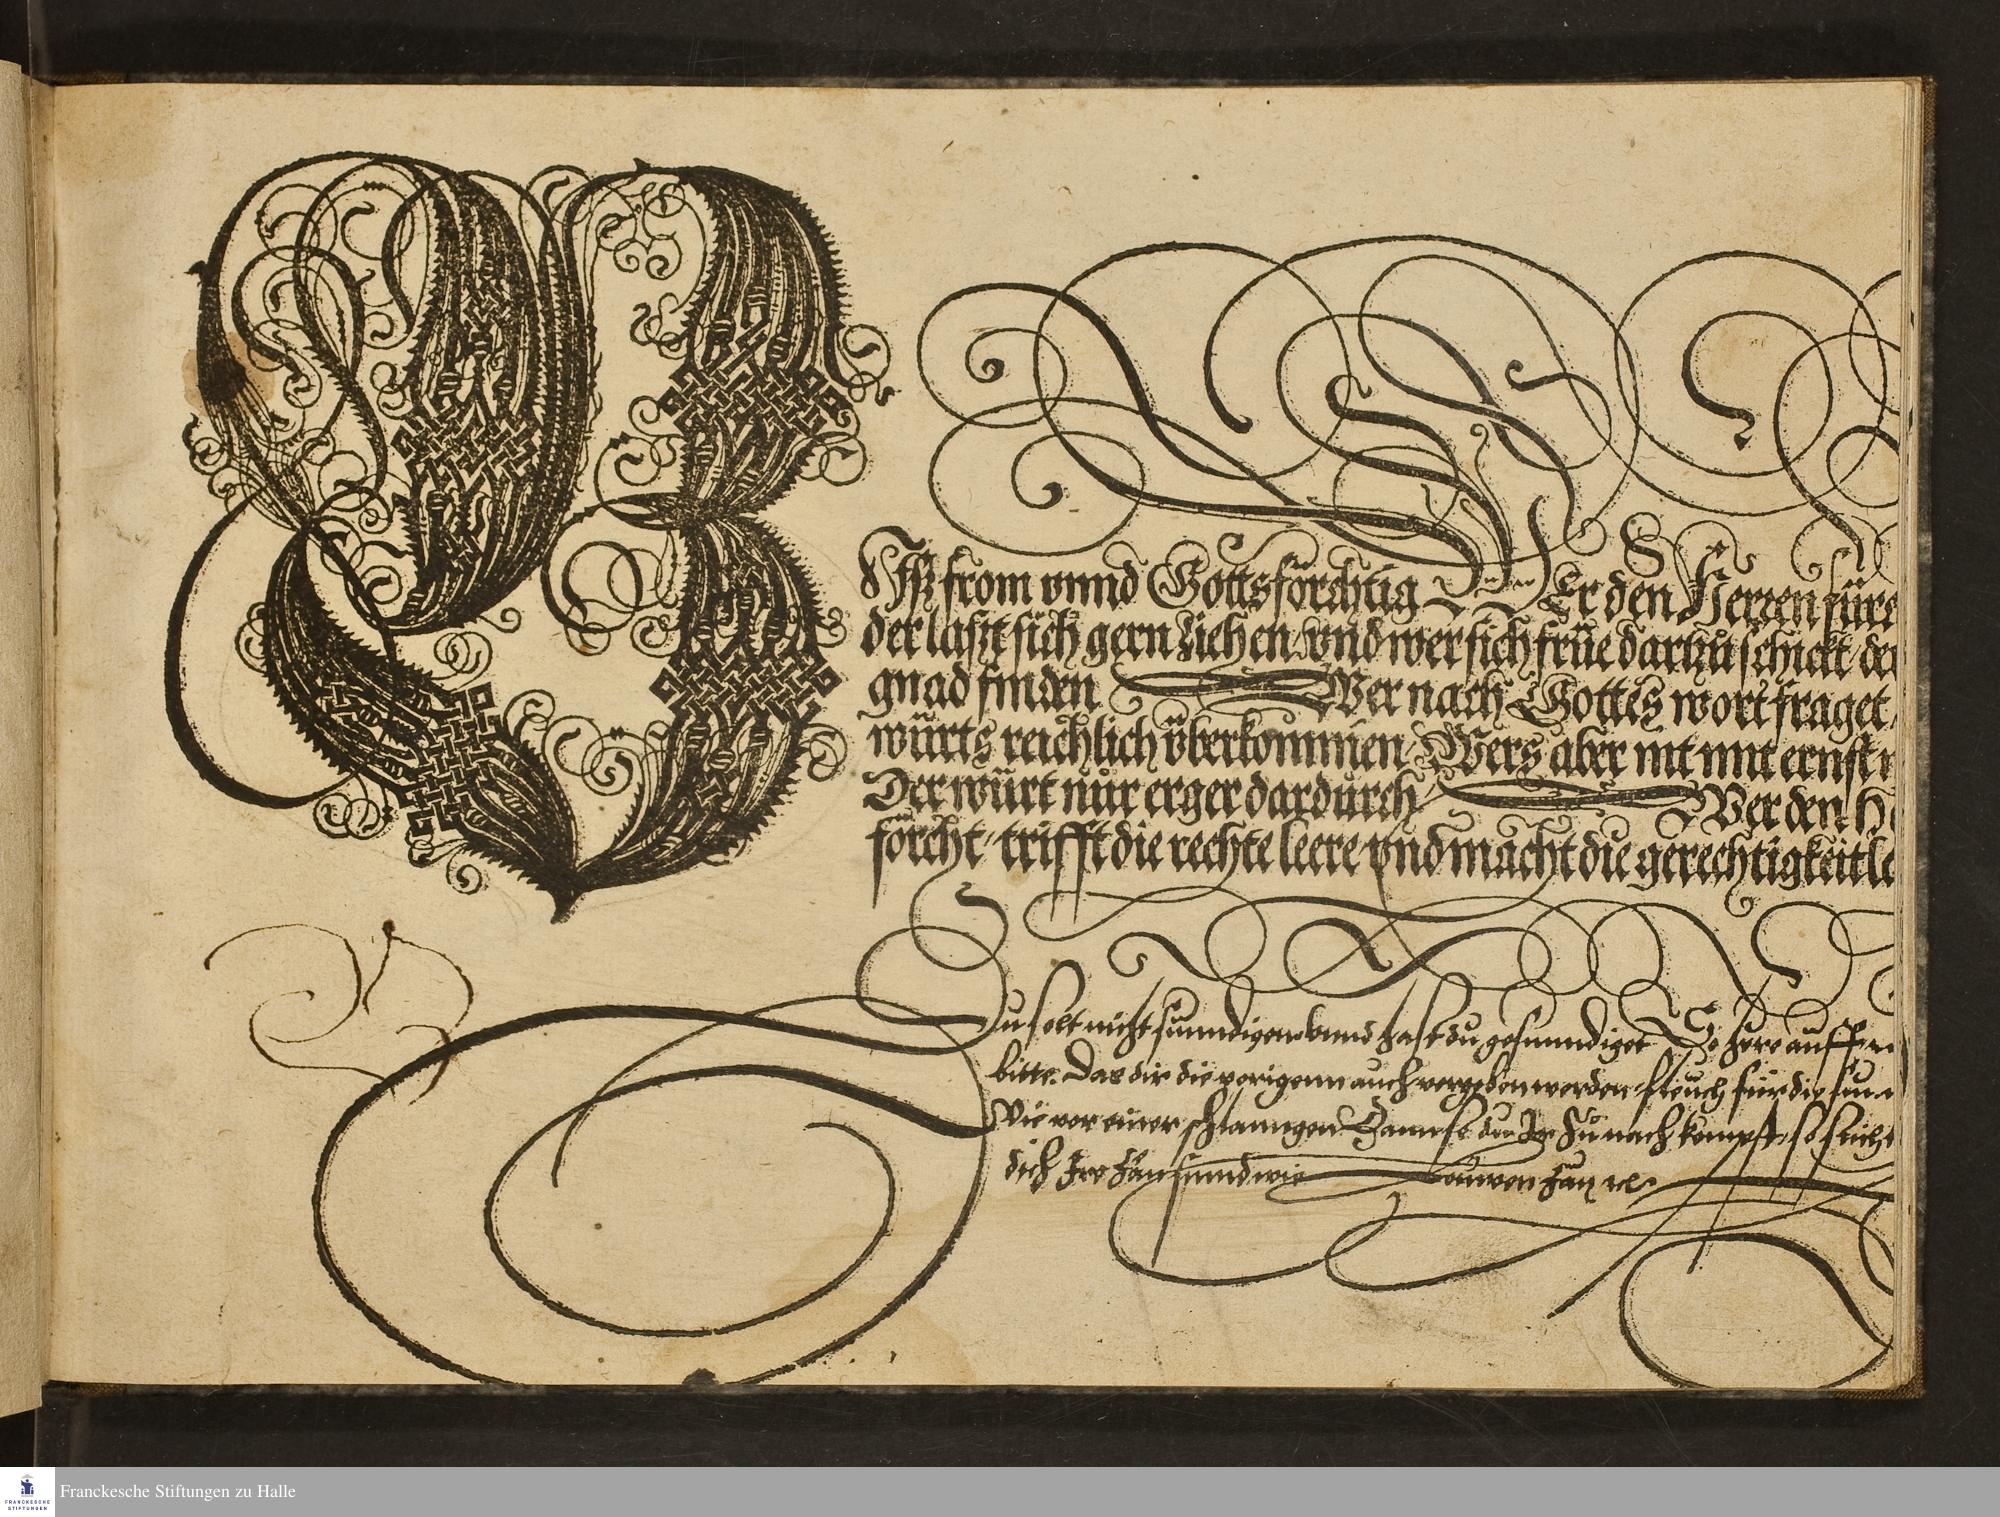 BIsz from vnnd Gottsförchtig Wer den Herren fürc
der laszt sich gern ziehen, vnd wer sich früe darzů schickt, der
gnad finden Wer nach Gottes wort fraget,
würts reichlich überkommen, Wers aber nit mit ernst
Der würt nur erger dardurch Wer den H
förcht, trifft die rechte leere vnd macht die gerechtigkeit
Du solt nicht sunndigen, vnnd hast du gesunndiget So höre auff
bitte. Das dir die vorigenn auch vergeben werden, fleuch für die
Wie vor einer schlanngen Dann so du Ir zů nach kompst, so sticht
dich Ire zän sinnd wie Löuwen zän
FRANCKESCHE
STIFTUNGEN
Franckesche Stiftungen zu Halle